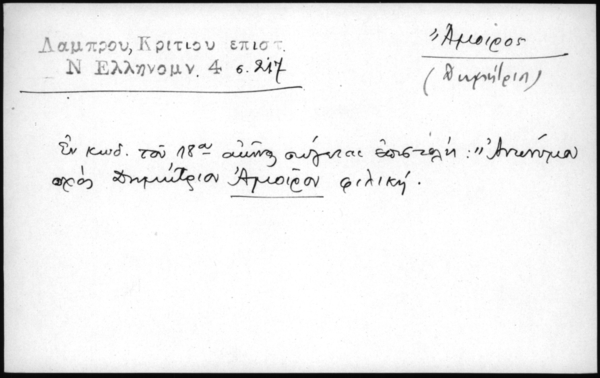 Λαμπρου, Κριτιου επιστ.
Ν Ελληνομν. 4 σ. 217
Ἄμοιρος
(Δημήτριος)
Ἐν κωδ. τοῦ 18ου αἰῶνος σώζεται ἐπιστολή: "Ἀνωνύμου
πρὸς Δημήτριον Ἀμοῖρον φιλική.